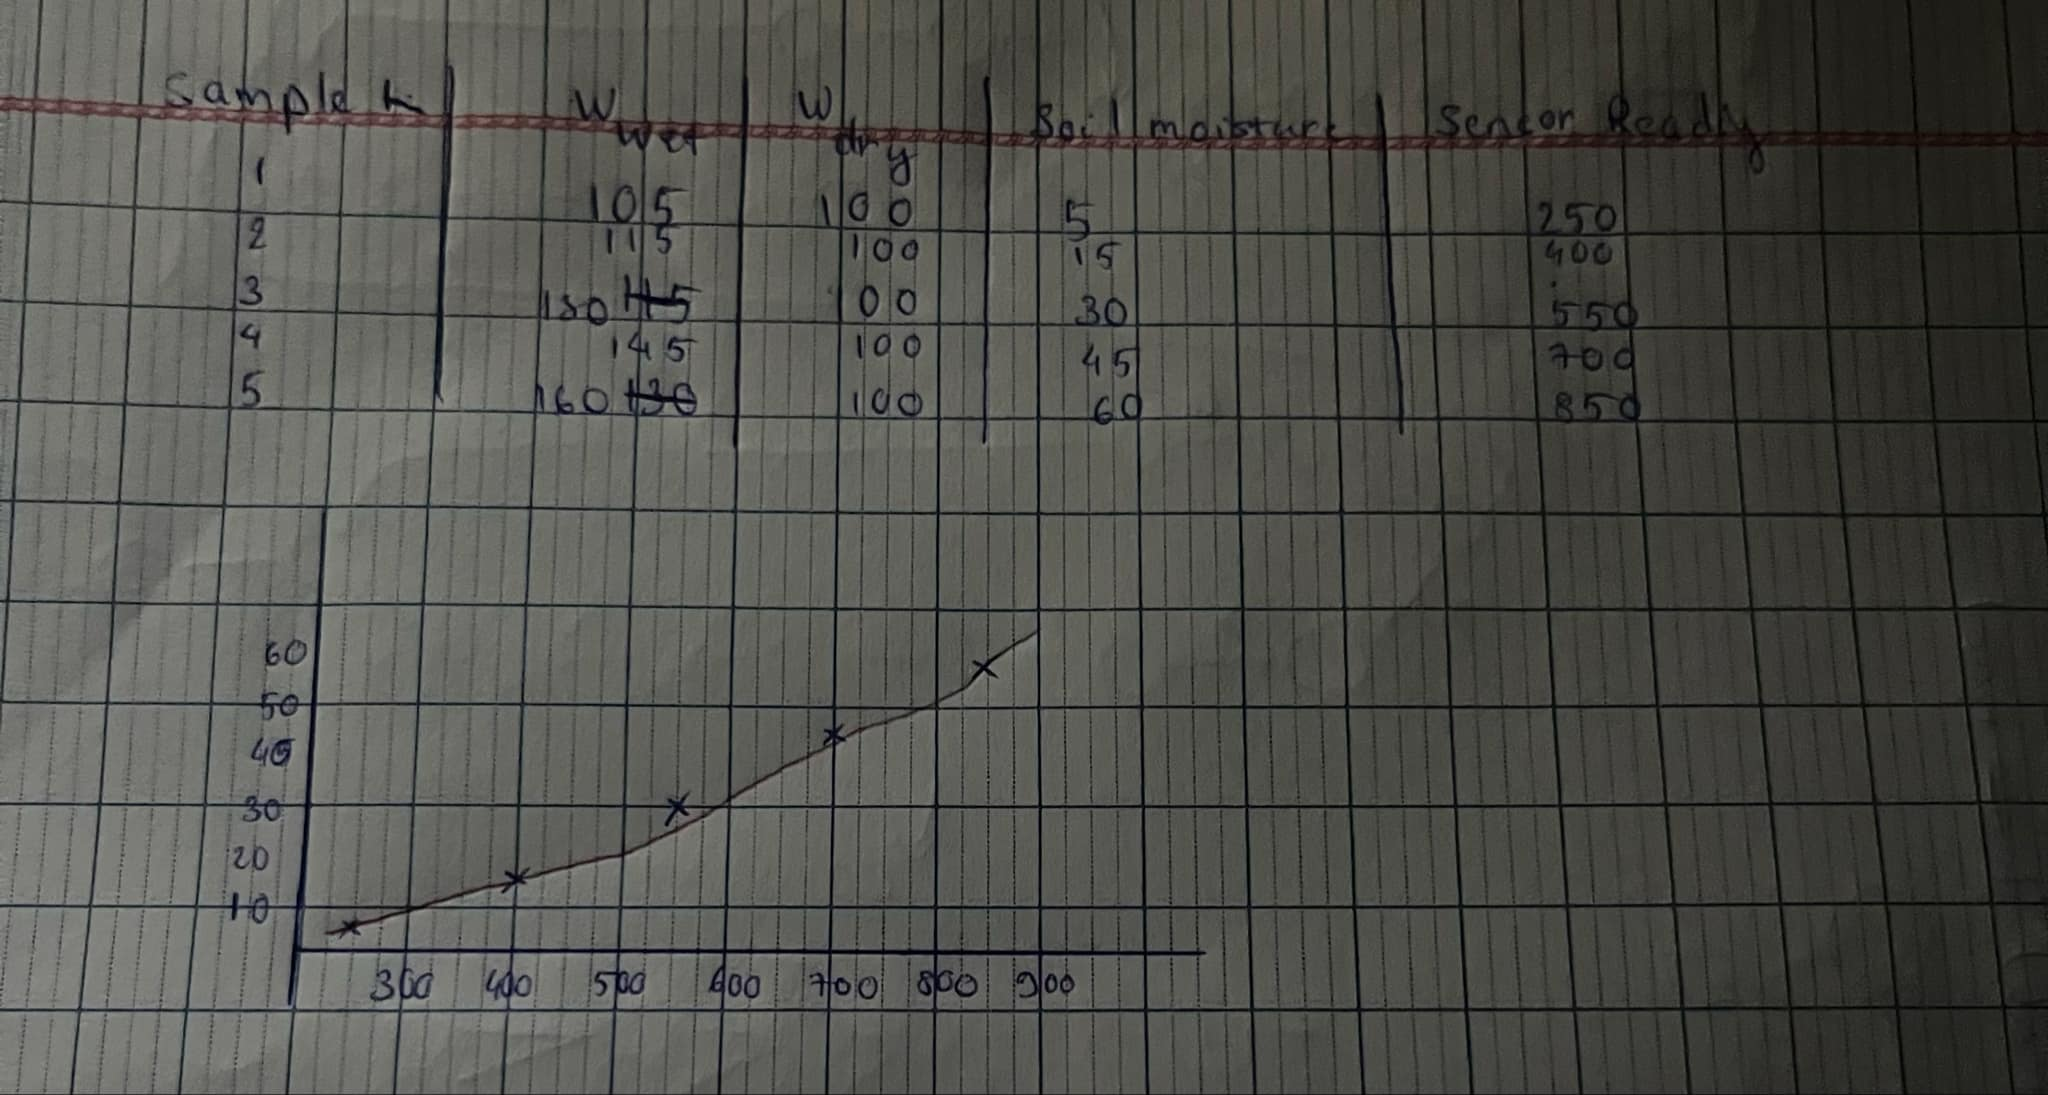 Sample N W wet W dry Soil moisture Sensor Ready
1 105 100 5 250
2 115 100 15 400
3 130 115 100 30 550
4 145 100 45 700
5 160 130 100 60 850
60
50
40
30
20
10
300 400 500 600 700 800 900